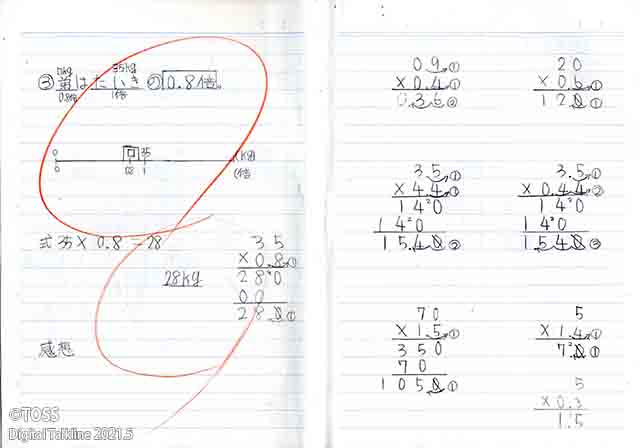 □kg 35kg
③弟はたいきの0.8倍。
0.8倍 1倍
0 □ 35 (kg)
0 0.8 1 (倍)
式 35×0.8=28
28kg
35
×0.8①
280
00
28.0①
感想
0.9①
×0.4①
0.36②
20
×0.6①
12.0①
3.5①
×4.4①
140
140
15.40②
3.5①
×0.44②
140
140
1.540③
70
×1.5①
350
70
105.0①
5
×1.4①
7.0①
5
×0.3
1.5
©TOSS
Digital Talkline 2021.5